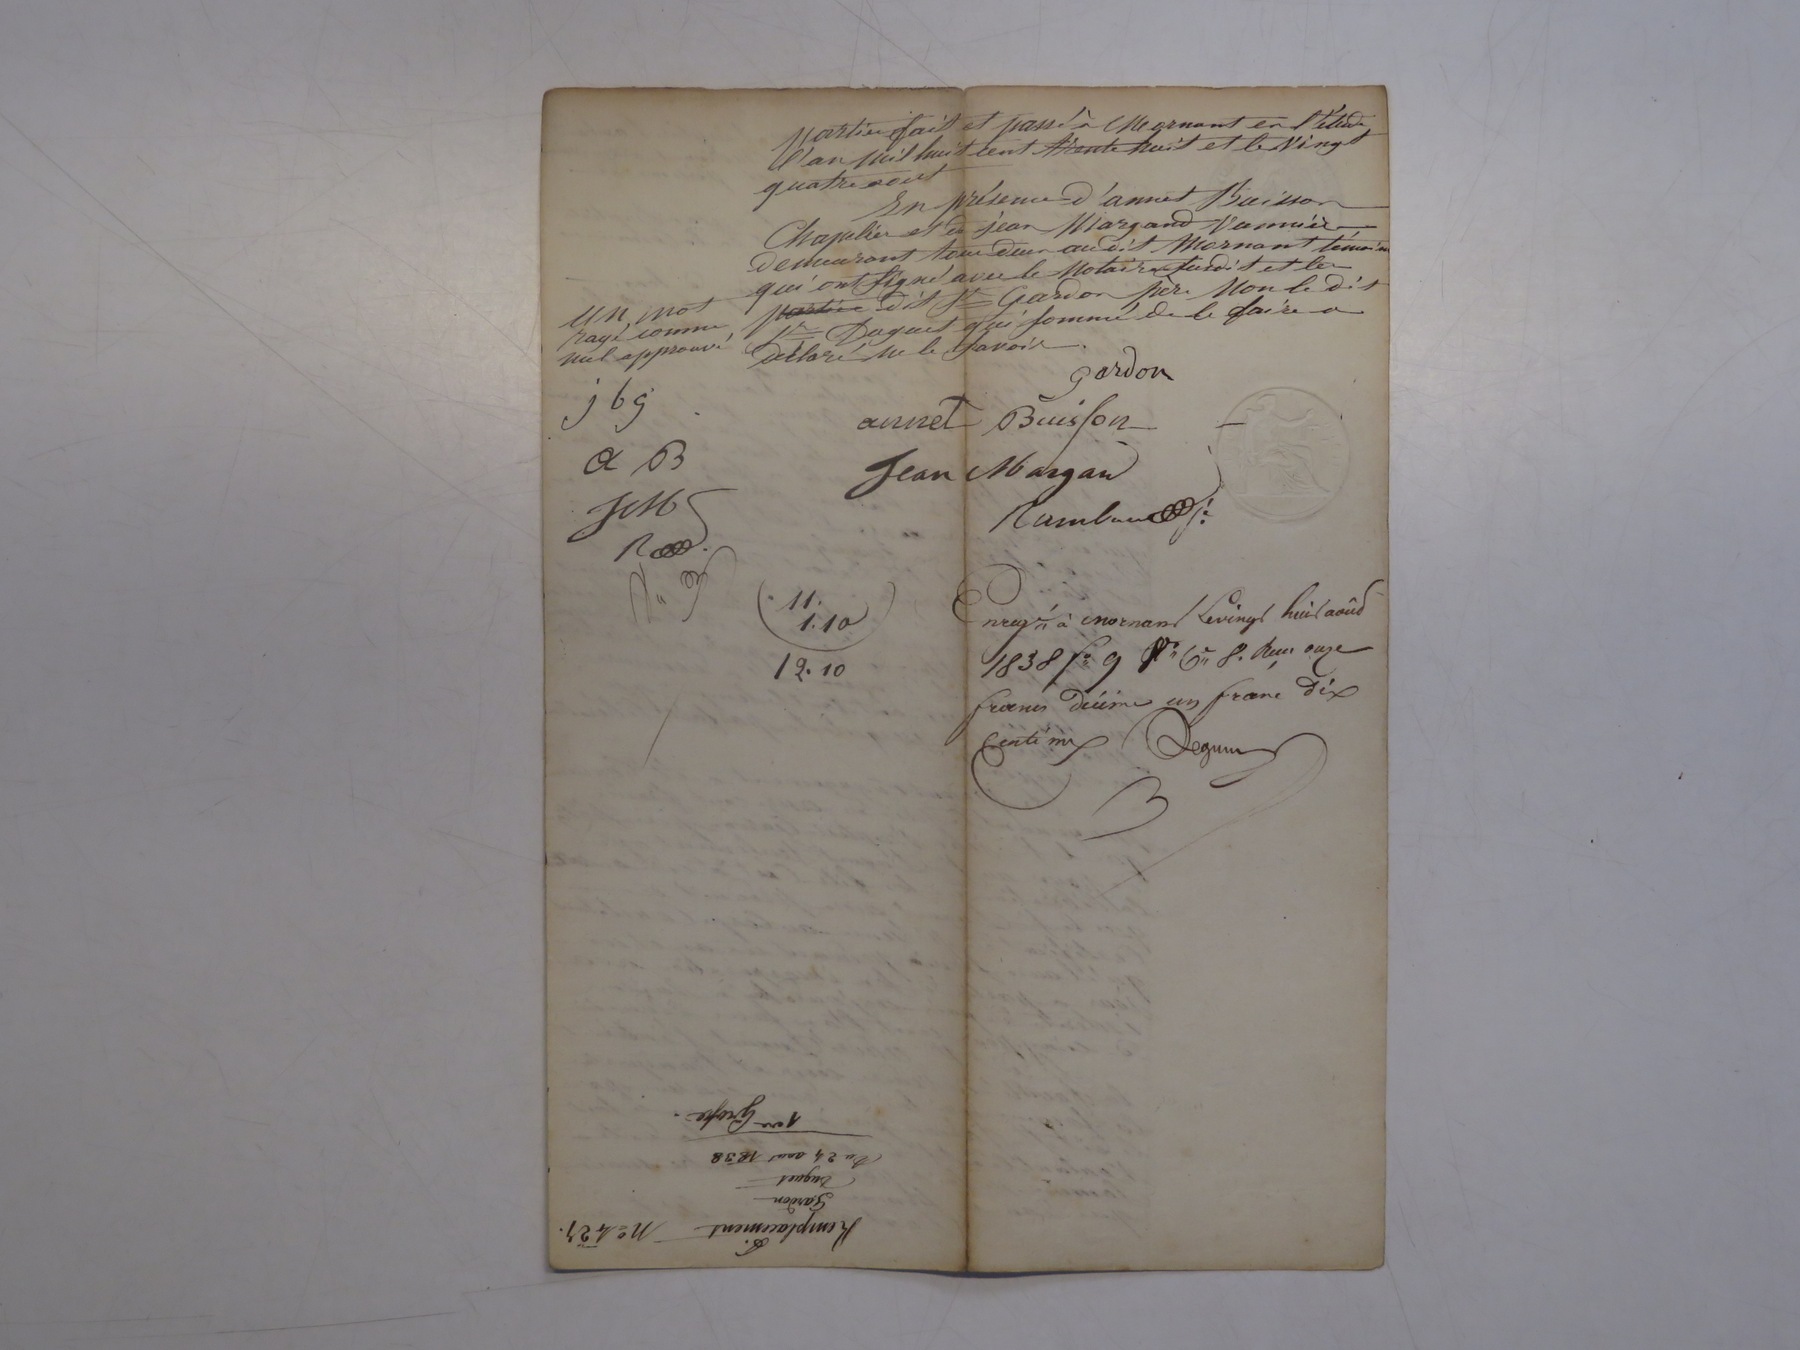 Partie fait et passé à Mornant en l'étude
l'an mil huit cent trente huit et le vingt
quatre aout
En présence d'annet Buisson
Chapelier et de jean Margand Vannier
demeurant tous deux audit Mornant témoins
qui ont signé avec le Notaire susdit et les
parties dit Sr Gardon père Non le dit
Sr Duguet qui sommé de le faire a
déclaré ne le savoir.
un mot
rayé comme
nul approuvé
jbg
a B
JM
R
gardon
annet Buisson
Jean Margan
Rambaud
11.
1.10
12.10
Enregré à Mornant le vingt huit aoûd
1838 fo 9 Vo Ce 8. Reçu onze
francs décime un franc dix
centimes
Remplacement
Gardon
Duguet
Du 24 aout 1838
1ere Grosse.